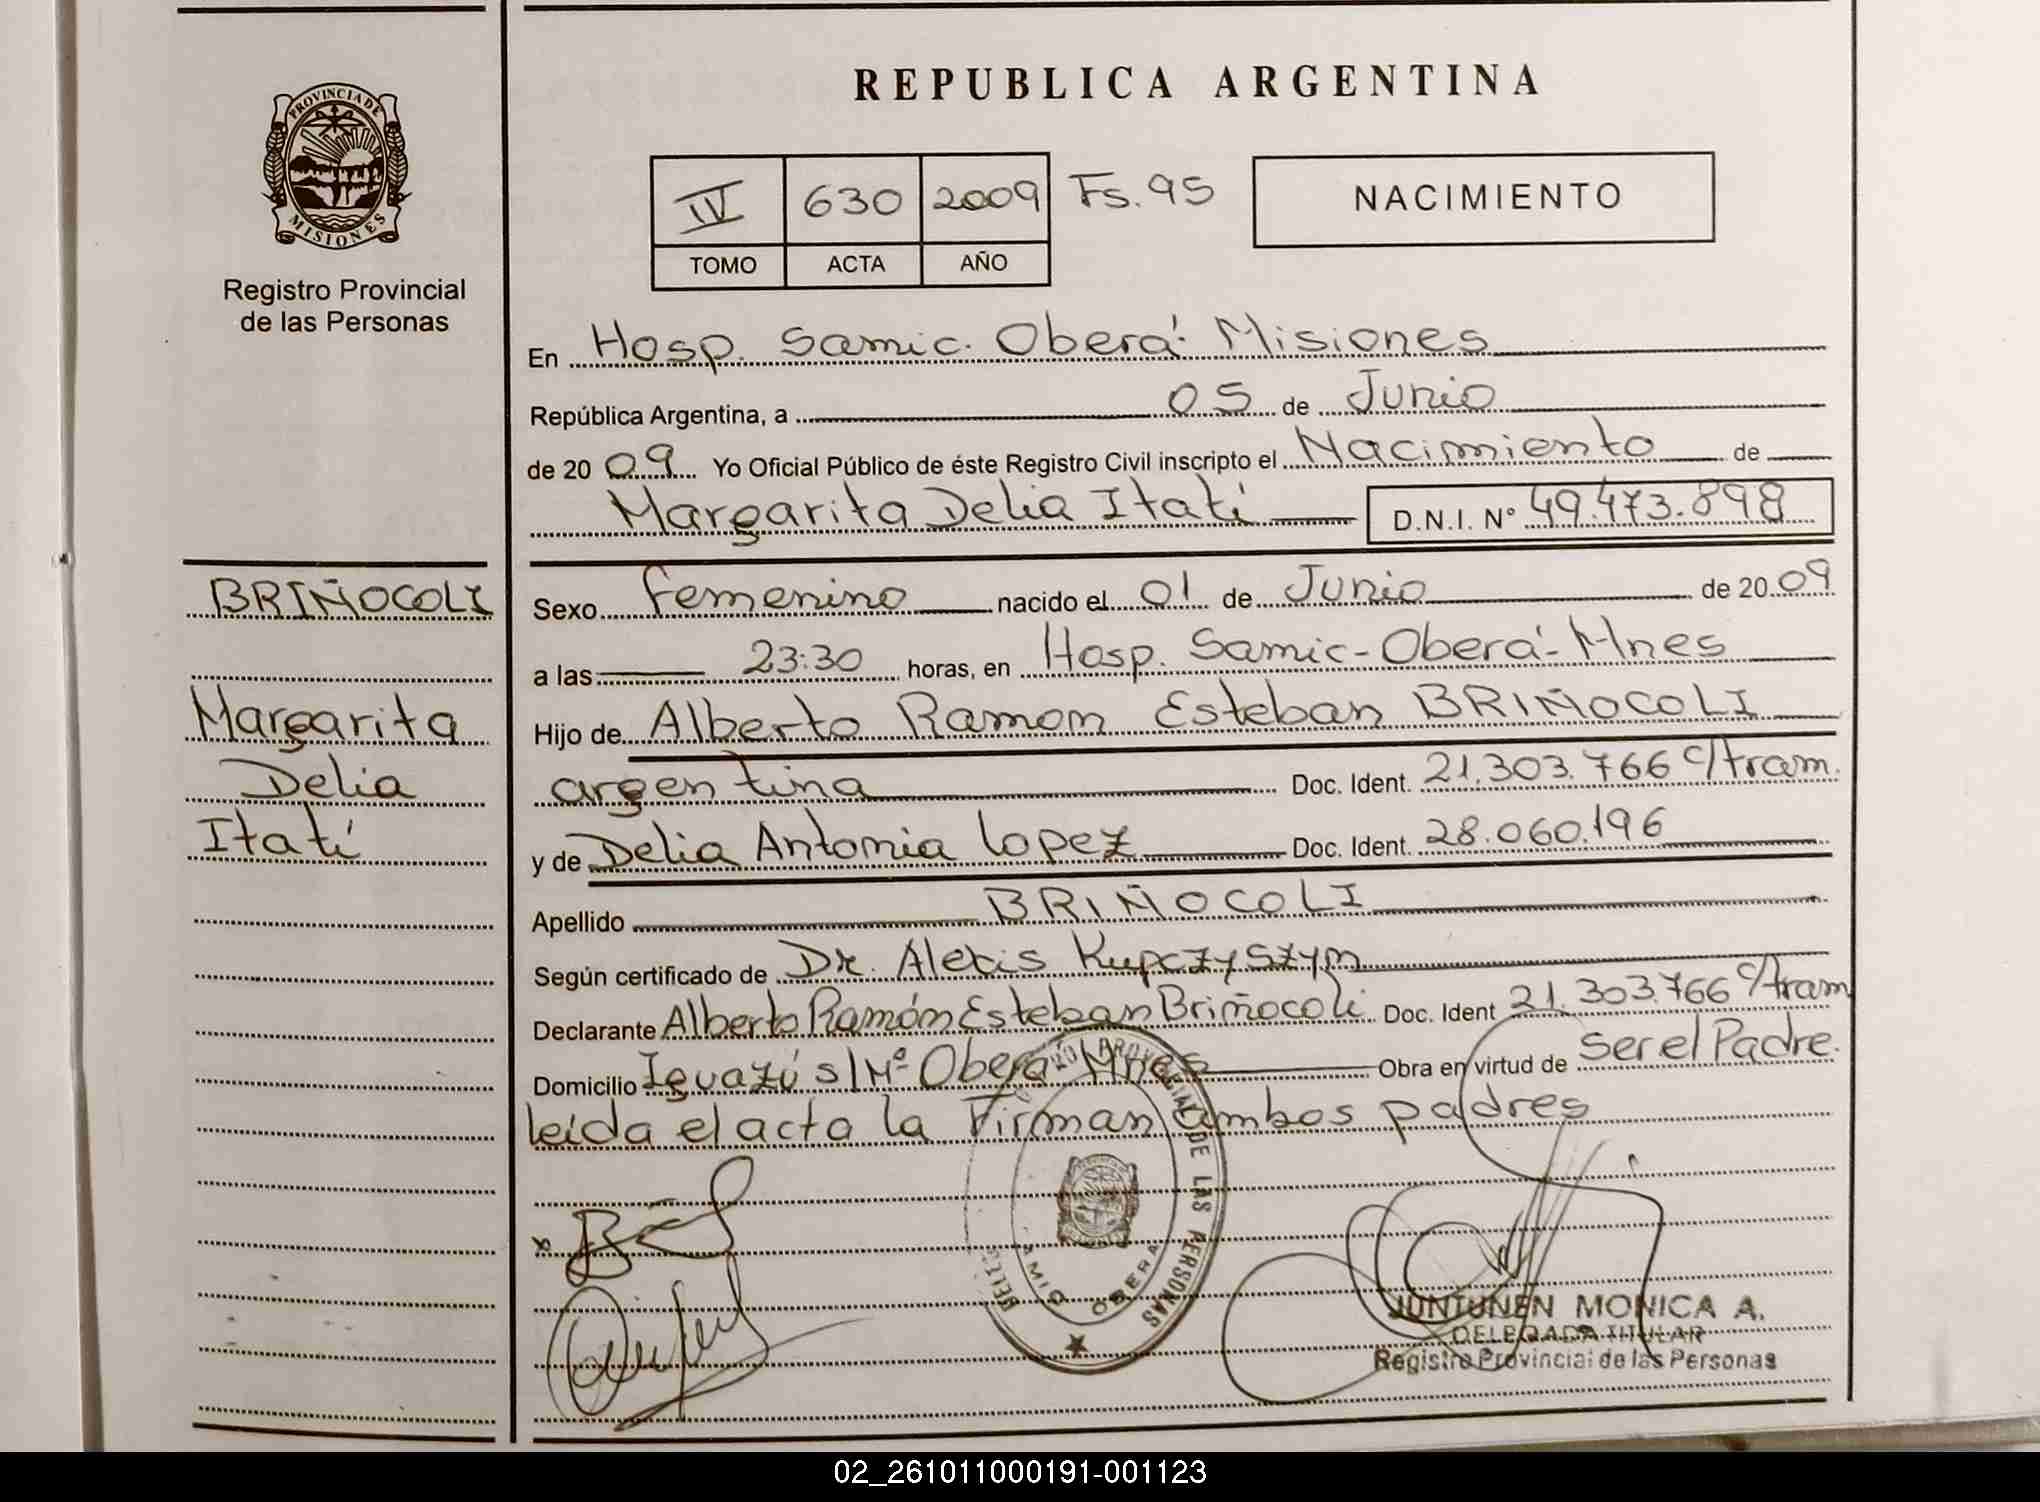 PROVINCIA DE
MISIONES
Registro Provincial
de las Personas
REPUBLICA ARGENTINA
IV 630 2009 Fs. 95
TOMO ACTA AÑO
NACIMIENTO
En Hosp. Samic. Oberá. Misiones
República Argentina, a 05 de Junio
de 2009 Yo Oficial Público de éste Registro Civil inscripto el Nacimiento de
Margarita Delia Itatí D.N.I. N° 49.473.898
BRIÑOCOLI
Margarita
Delia
Itatí
Sexo femenino nacido el 01 de Junio de 2009
a las 23:30 horas, en Hosp. Samic-Oberá-Mnes
Hijo de Alberto Ramon Esteban BRIÑOCOLI
argentina Doc. Ident. 21.303.766 c/tram.
y de Delia Antonia Lopez Doc. Ident. 28.060.196
Apellido BRIÑOCOLI
Según certificado de Dr. Alexis Kupczyszym
Declarante Alberto Ramón Esteban Briñocoli Doc. Ident 21.303.766 c/tram
Domicilio Iguazú s/Nº Oberá Mnes Obra en virtud de Ser el Padre.
leída el acta la Firman ambos padres
DE LAS PERSONAS
OBERA
JUNTUNEN MONICA A.
DELEGADA TITULAR
Registro Provincial de las Personas
02_261011000191-001123